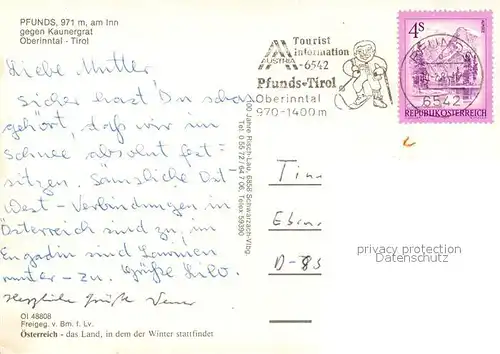 PFUNDS, 971 m, am Inn
gegen Kaunergrat
Oberinntal - Tirol
Liebe Mutter!
Sicher hast Du schon
gehört, daß wir im
Schnee absolut fest-
sitzen. Sämtliche Ost-
West-Verbindungen in
Österreich sind zu, im
Engadin sind Lawinen
runter - zu. Grüße Lilo.
Herzliche Grüße
OI 48808
Freigeg. v. Bm. f. Lv.
Österreich - das Land, in dem der Winter stattfindet
100 Jahre Risch-Lau, 6858 Schwarzach-Vbg.
Tel. 0 55 72 / 64 7 06, Telex 59390
Tourist
information
AUSTRIA -6542
Pfunds-Tirol
Oberinntal
970-1400 m
4S
6542
REPUBLIK ÖSTERREICH
Tinn
Eben
D-85
privacy protection
Datenschutz